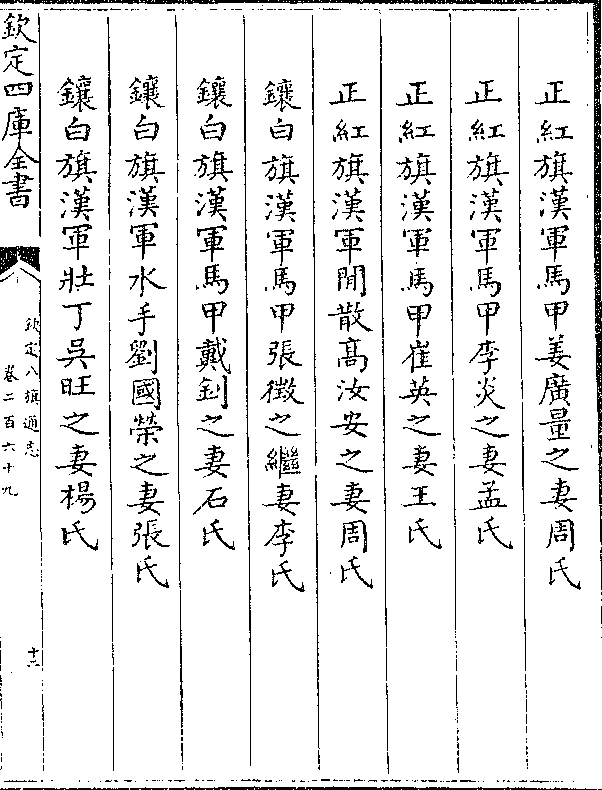 正紅旗漢軍馬甲姜廣量之妻周氏
正紅旗漢軍馬甲李炎之妻孟氏
正紅旗漢軍馬甲崔英之妻王氏
正紅旗漢軍閒散高汝安之妻周氏
鑲白旗漢軍馬甲張徴之繼妻李氏
鑲白旗漢軍馬甲戴釗之妻石氏
鑲白旗漢軍水手劉國榮之妻張氏
鑲白旗漢軍壯丁吳旺之妻楊氏
欽定四庫全書
欽定八旗通志
卷二百六十九
十二